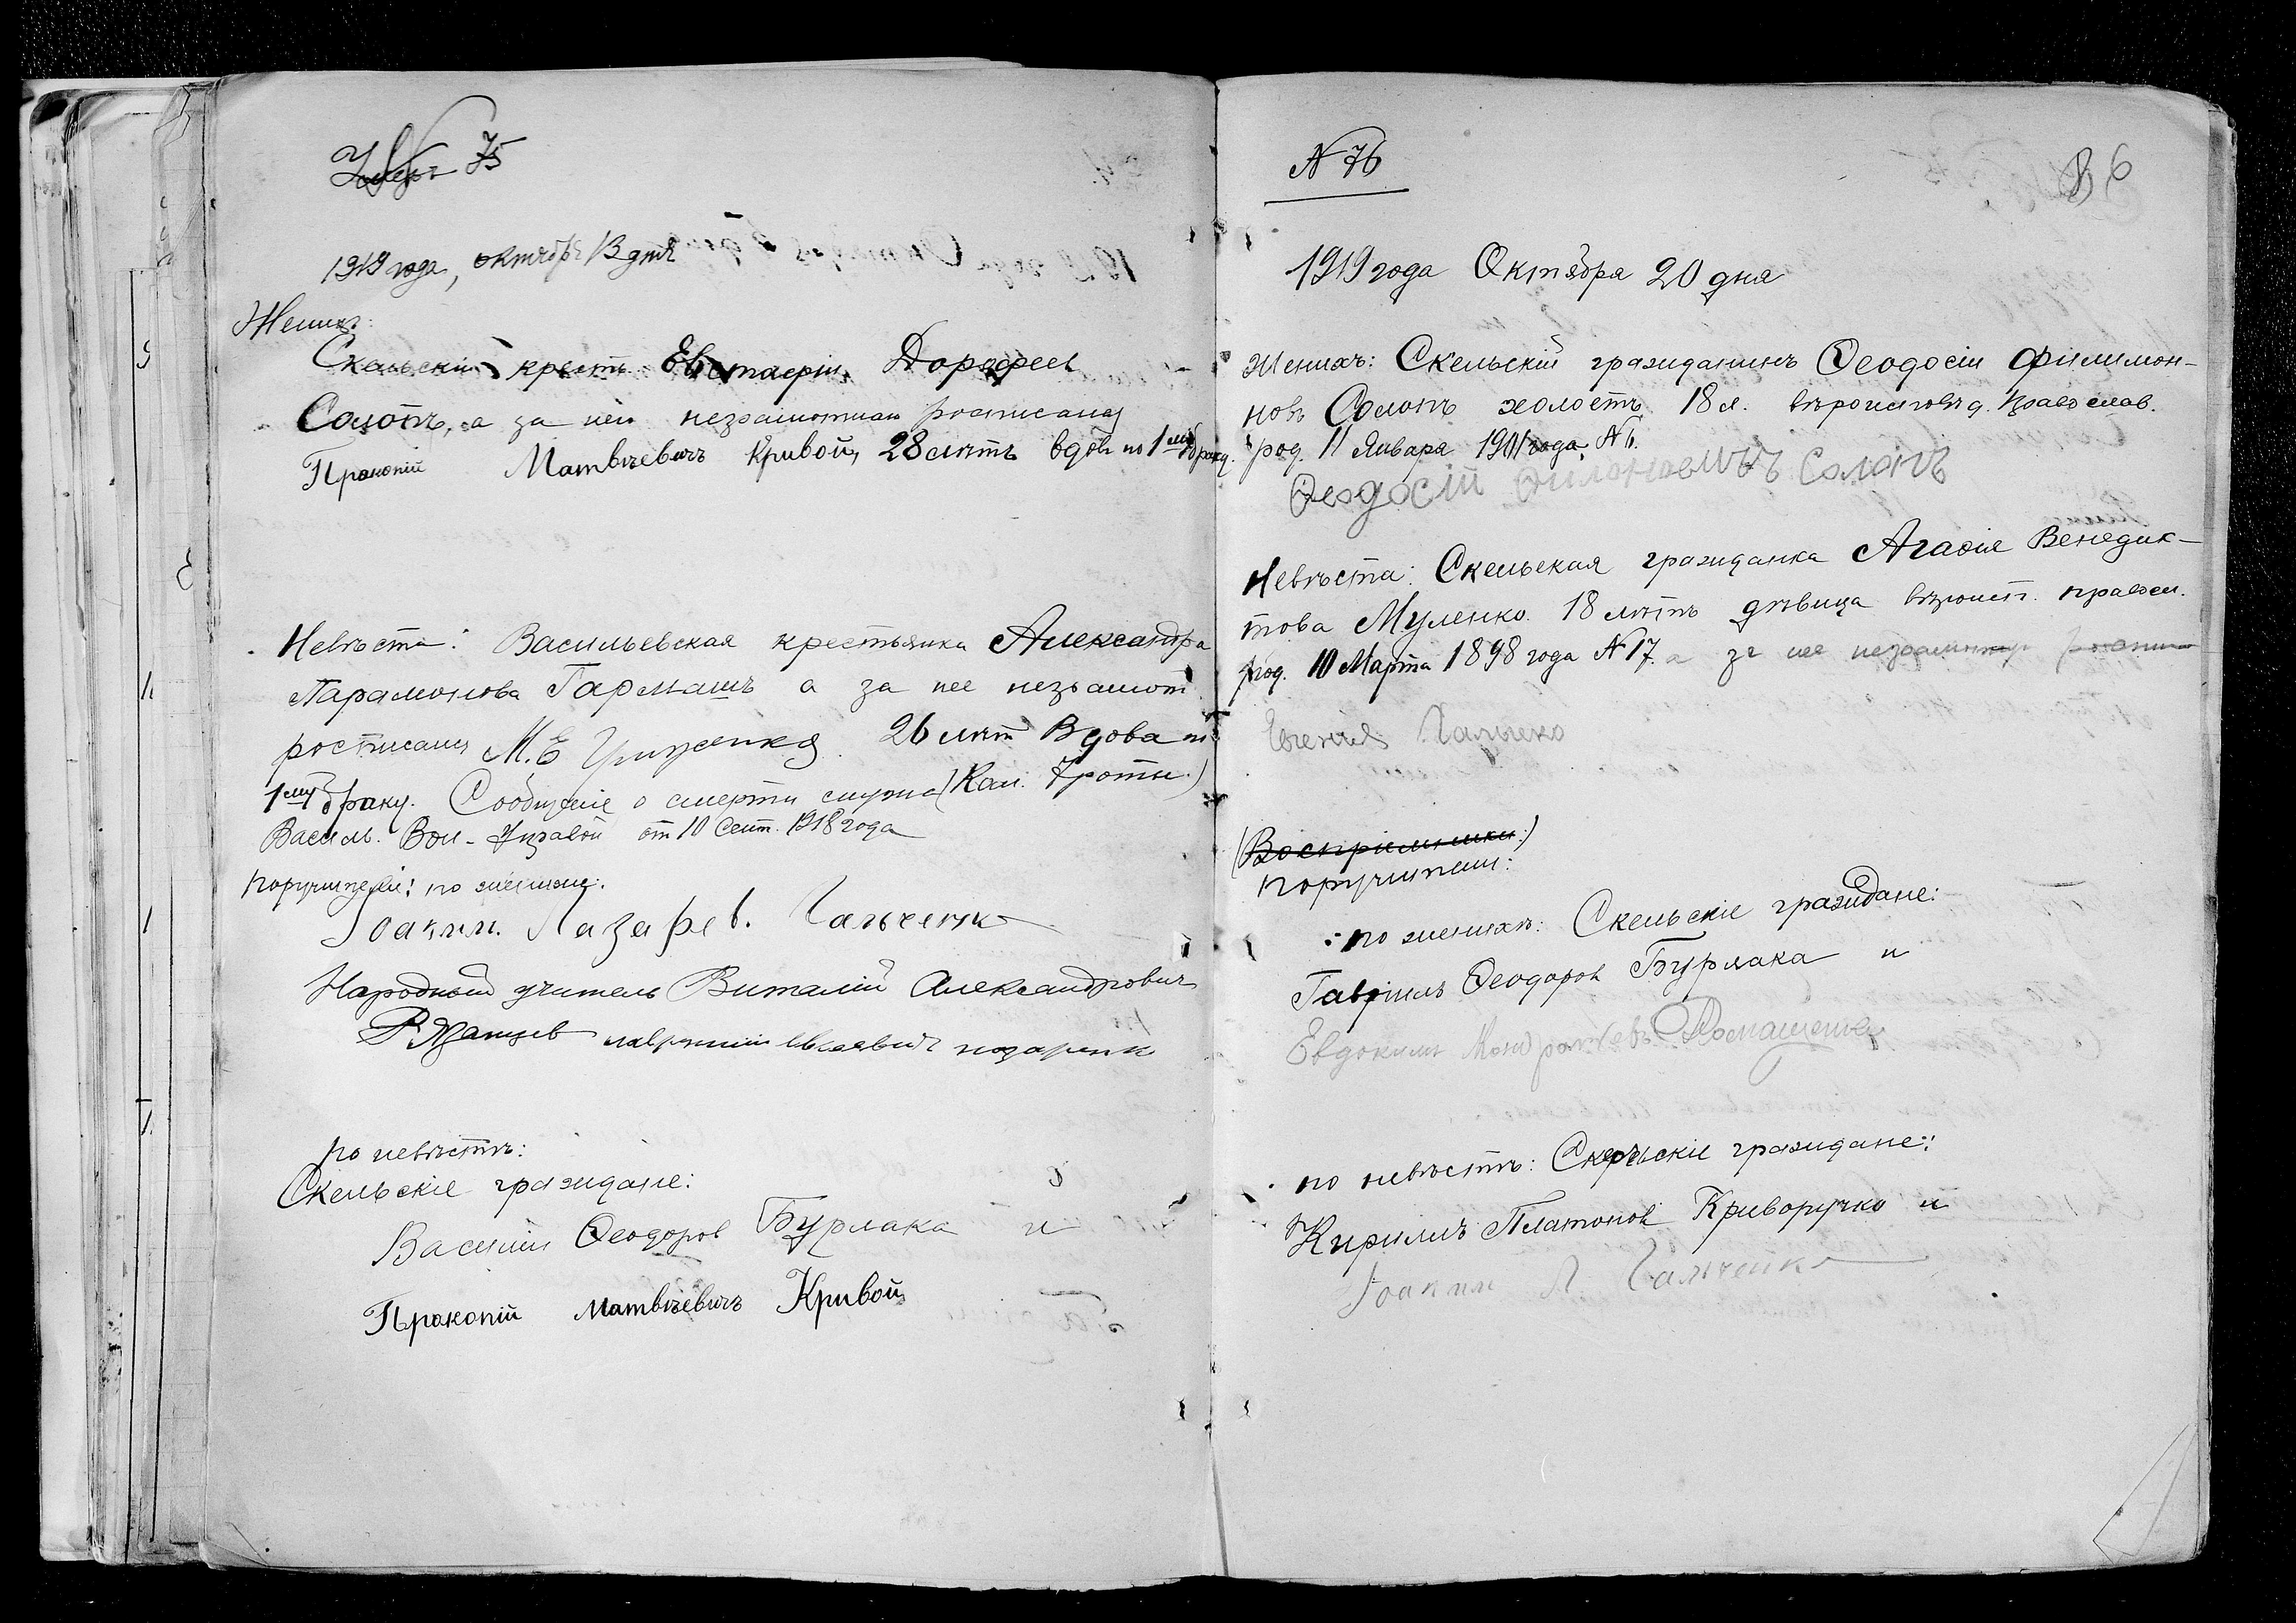 № 75
1919 года, октября 13 дня
Женихъ:
Скельскій крестъ. Евстафій Дорофеев
Солопъ, а за него неграмотнаго росписался
Прокопій Матвѣевичъ Кривой, 28 лѣтъ вдов по 1му браку.
Невѣста: Васильевская крестьянка Александра
Парамонова Гармашъ а за нее неграмот.
росписался М. Е. 26 лѣт Вдова по
1му браку. Сообщеніе о смерти мужа (Кан. 7 роты.)
Василь. Вол. Управой от 10 Сент. 1918 года
Поручители: по женихѣ:
Іоаким. Лазарев. Гальченко
Народный учитель Виталій Александрович
Рязанцев
по невѣстѣ:
Скельскіе граждане:
Василій Ѳеодоров Бурлака и
Прокопій Матвѣевичъ Кривой
N 76
86
1919 года Октября 20 дня
Женихъ: Скельскій гражданинъ Ѳеодосій Филимон-
новъ Солопъ холостъ 18 л. вѣроисповѣд. Православ.
род. 11 Января 1901 года, N 6.
Ѳеодосій Солопъ
Невѣста: Скельская гражданка Агафія Венедик-
това Муленко. 18 лѣтъ дѣвица вѣроисп. правосл.
род. 10 Марта 1898 года N 17. а за нее неграмотную роспис
Евгенія Гальченко
(Воспріемники:)
Поручители:
по женихѣ: Скельскіе граждане:
Гавріилъ Ѳеодоров Бурлака и
Евдокимъ Домащенко
по невѣстѣ: Скельскіе граждане:
Кириллъ Платонов Криворучко и
Іоаким Л. Гальченко